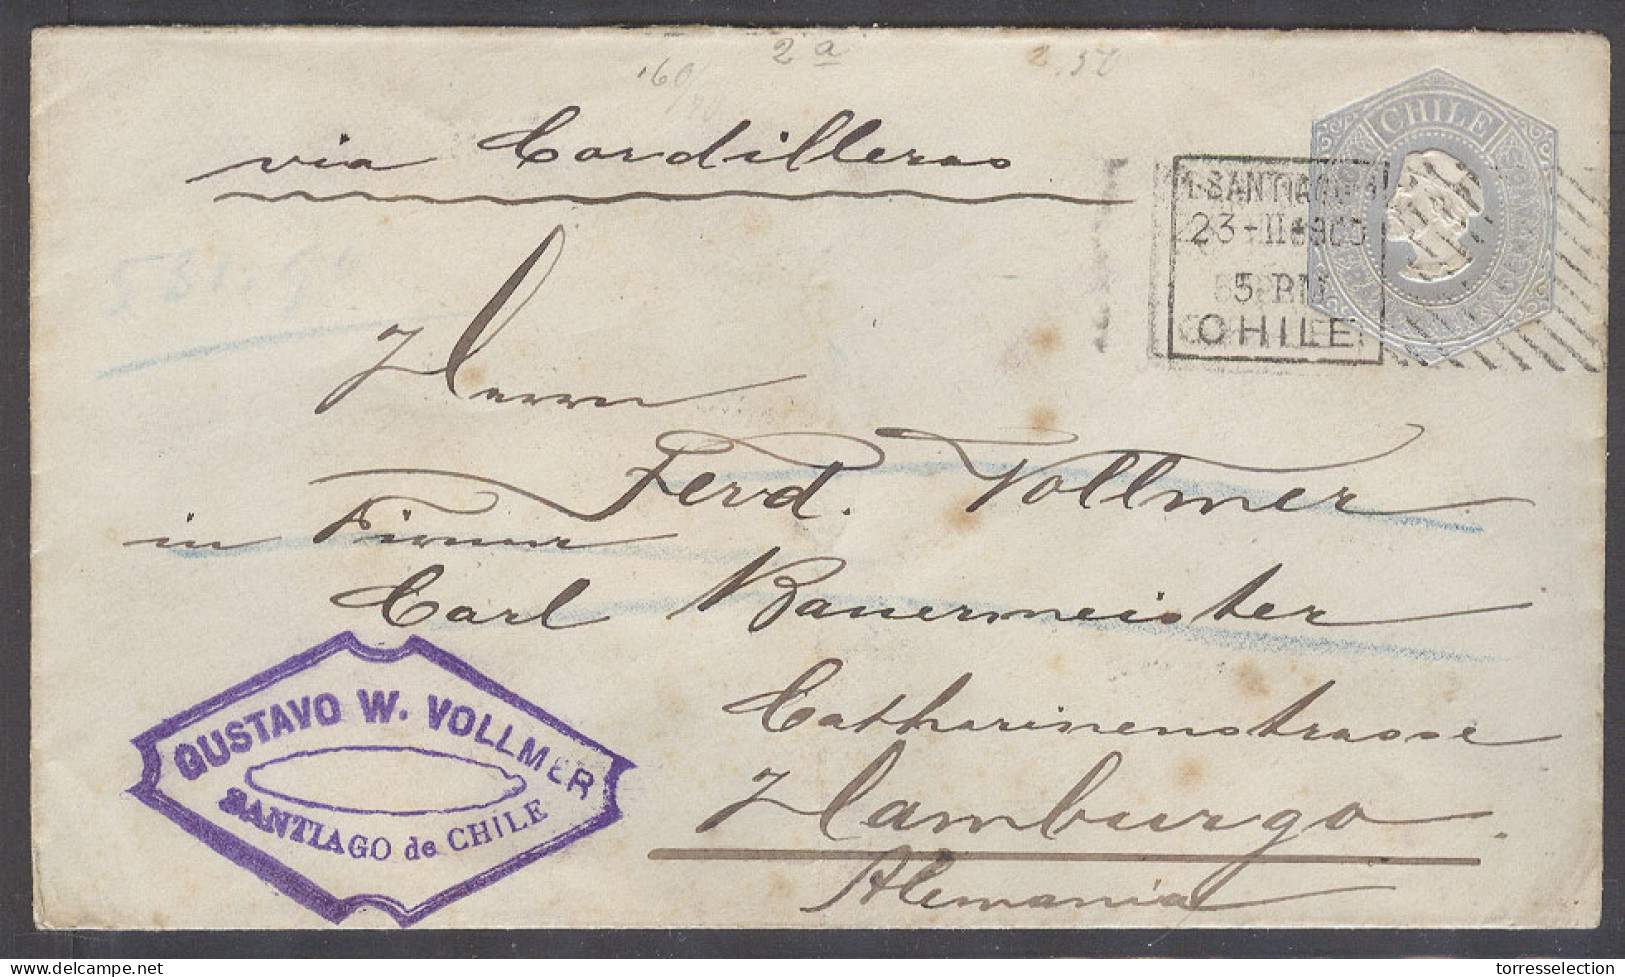 2 a
2.50
160/70
via Cordilleras
CHILE
1-SANTIAGO-3
23-II-900
5 PM
CHILE
531.50
Herrn
Ferd. Vollmer
in Firma
Carl Bauermeister
Catharinenstrasse
Hamburgo.
Alemania
GUSTAVO W. VOLLMER
SANTIAGO de CHILE
delcampe.net
torresselection